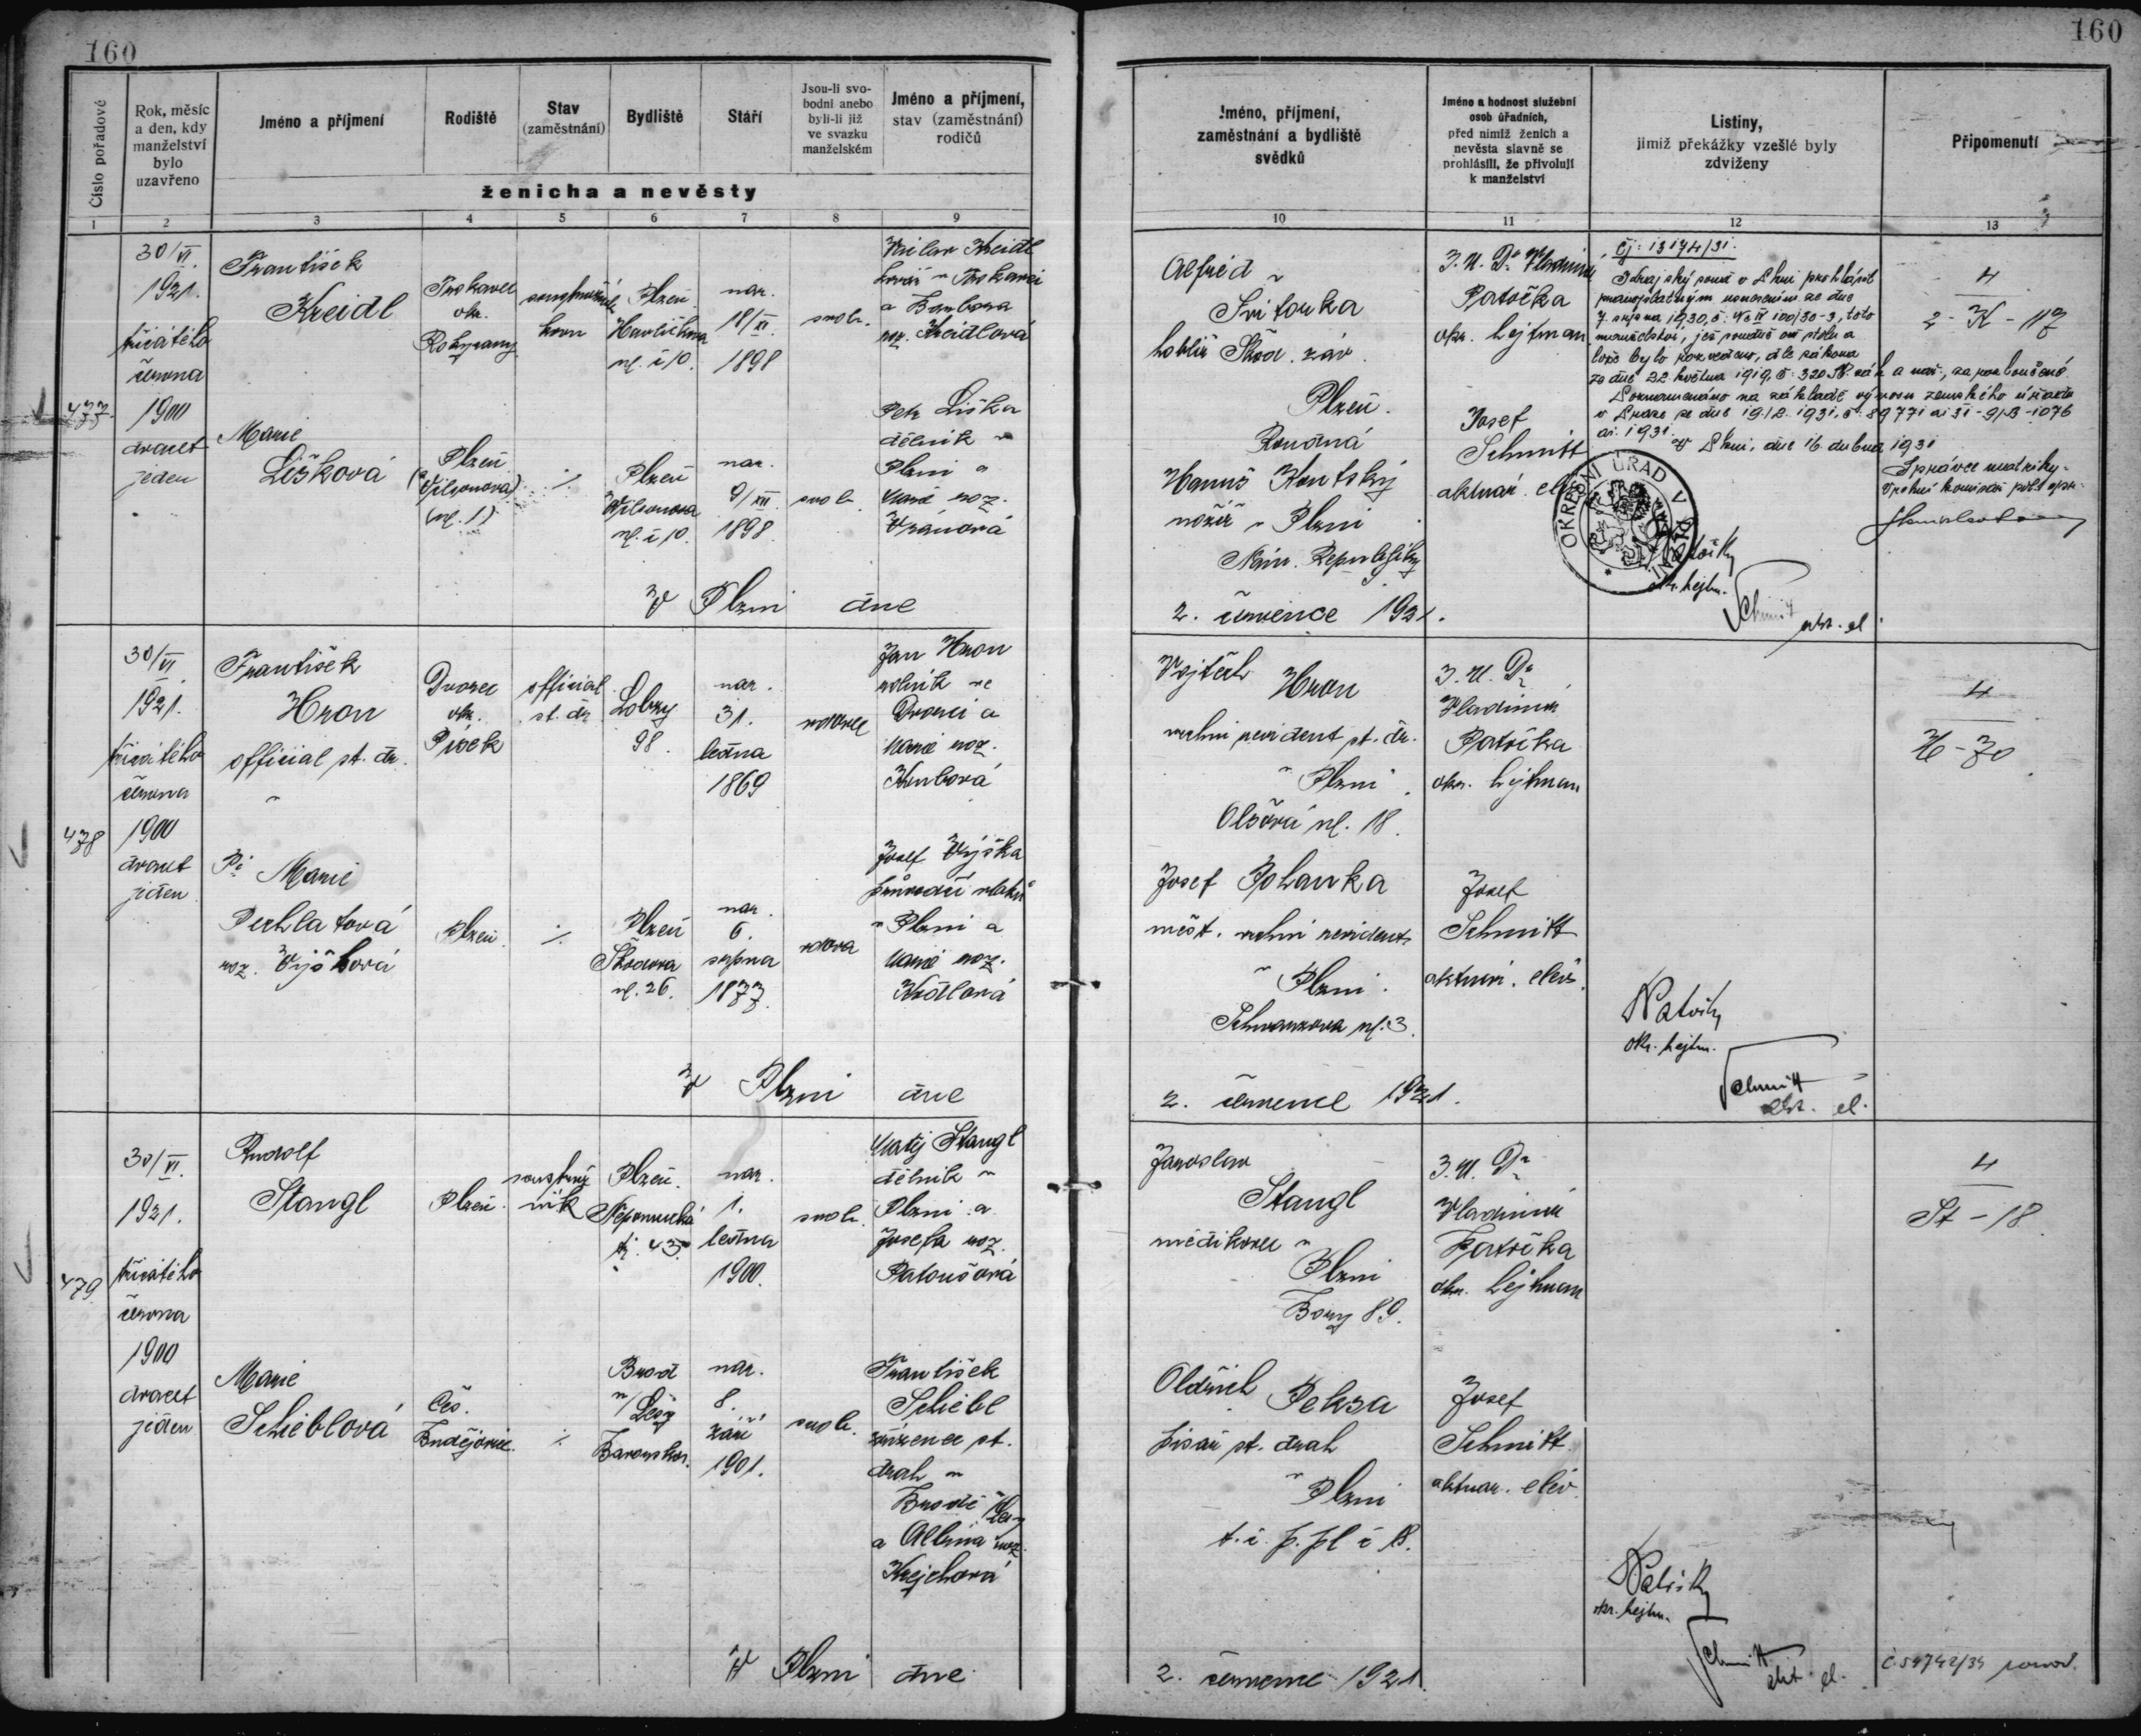 160
160
Číslo pořadové
Rok, měsíc a den, kdy manželství bylo uzavřeno
Jméno a příjmení
Rodiště
Stav (zaměstnání)
Bydliště
Stáří
Jsou-li svobodni anebo byli-li již ve svazku manželském
Jméno a příjmení, stav (zaměstnání) rodičů
ženicha a nevěsty
Jméno, příjmení, zaměstnání a bydliště svědků
Jméno a hodnost služební osob úřadních, před nimiž ženich a nevěsta slavně se prohlásili, že přivolují k manželství
Listiny, jimiž překážky vzešlé byly zdviženy
Připomenutí
1 2 3 4 5 6 7 8 9 10 11 12 13
477
30/VI.
1921.
třicátého
června
1900
dvacet
jeden
František
Kreidl
okr.
Rokycany
Plzeň
ul. č 10.
nar.
18/XI.
1898
svob.
Kreidl
a Barbora
roz. Kreidlová
Marie
Lišková
Plzeň
(Wilsonova)
(ul. 1)
⁒
Plzeň
Wilsonova
ul. č 10.
nar.
9/XII.
1898.
svob.
Petr Liška
dělník v
Plzni a
Marie roz.
Vránová
V Plzni dne
Alfréd
Svitovka
Škod. záv.
Plzeň.
Hanuš Koutský
v Plzni
Nám. Republiky
2. července 1921.
J. U. Dr Vladimír
Patočka
okr. hejtman
Josef
Schmitt
aktuár. elév
Čj: 13174/31.
Krajský soud v Plzni prohlásil
pravoplatným usnesením ze dne
7. srpna 1930, č. Nc IV 100/30-3, toto
manželství, jež původně od stolu a
lože bylo rozvedeno, dle zákona
ze dne 22. května 1919, č. 320 Sb. zák. a nař., za rozloučené.
Poznamenáno na základě výnosu zemského úřadu
v Praze ze dne 19./2. 1931, č. 89771 ai 31-9/3-1076
ai. 1931.
V Plzni, dne 16. dubna 1931
Správce matriky:
OKRESNÍ ÚŘAD V PLZNI
okr. hejtm.
Schmitt
akt. el.
4
2-K-117
478
30/VI.
1921.
třicátého
června
1900
dvacet
jeden
František
Hron
official st. dr.
Dvorec
okr.
Písek
official
st. dr.
Lobzy
98.
nar.
31.
ledna
1869
vdovec
Jan Hron
rolník ve
Dvorci a
Marie roz.
Koubová
Pí Marie
Pechlatová
roz. Vyšková
Plzeň
⁒
Plzeň
Škodova
ul. 26.
nar.
6.
srpna
1877.
vdova
Josef Vyška
průvodčí vlaků
v Plzni a
Marie roz.
V Plzni dne
Vojtěch Hron
vrchní revident st. dr.
v Plzni
Olšová ul. 18.
Josef Polanka
měst. vrchní revident
v Plzni.
Schwarzova ul. 3.
2. července 1921.
J. U. Dr
Vladimír
Patočka
okr. hejtman
Josef
Schmitt
aktuár. elév.
Patočka
okr. hejtm.
Schmitt
akt. el.
4
H-70
479
30/VI.
1921.
třicátého
června
1900
dvacet
jeden
Rudolf
Stangl
Plzeň.
soustruž
ník
Plzeň.
Nepomucká
tř. 43.
nar.
1.
ledna
1900.
svob.
Matěj Stangl
dělník v
Plzni a
Josefa roz.
Patoušová
Marie
Schieblová
Čes.
Budějovice.
⁒
Brod
n/Lesy
nar.
8.
září
1901.
svob.
František
Schiebl
zřízenec st.
drah v
Brodě n/Lesy
a Albína roz.
Krejchová
V Plzni dne
Jaroslav
Stangl
mědikovec v
Plzni
Bory 89.
Oldřich Peksa
písař st. drah
v Plzni
t. č. p. pl č 18.
2. července 1921.
J. U. Dr
Vladimír
Patočka
okr. hejtman
Josef
Schmitt
aktuar. elév
Patočka
okr. hejtm.
Schmitt
akt. el.
4
St-18